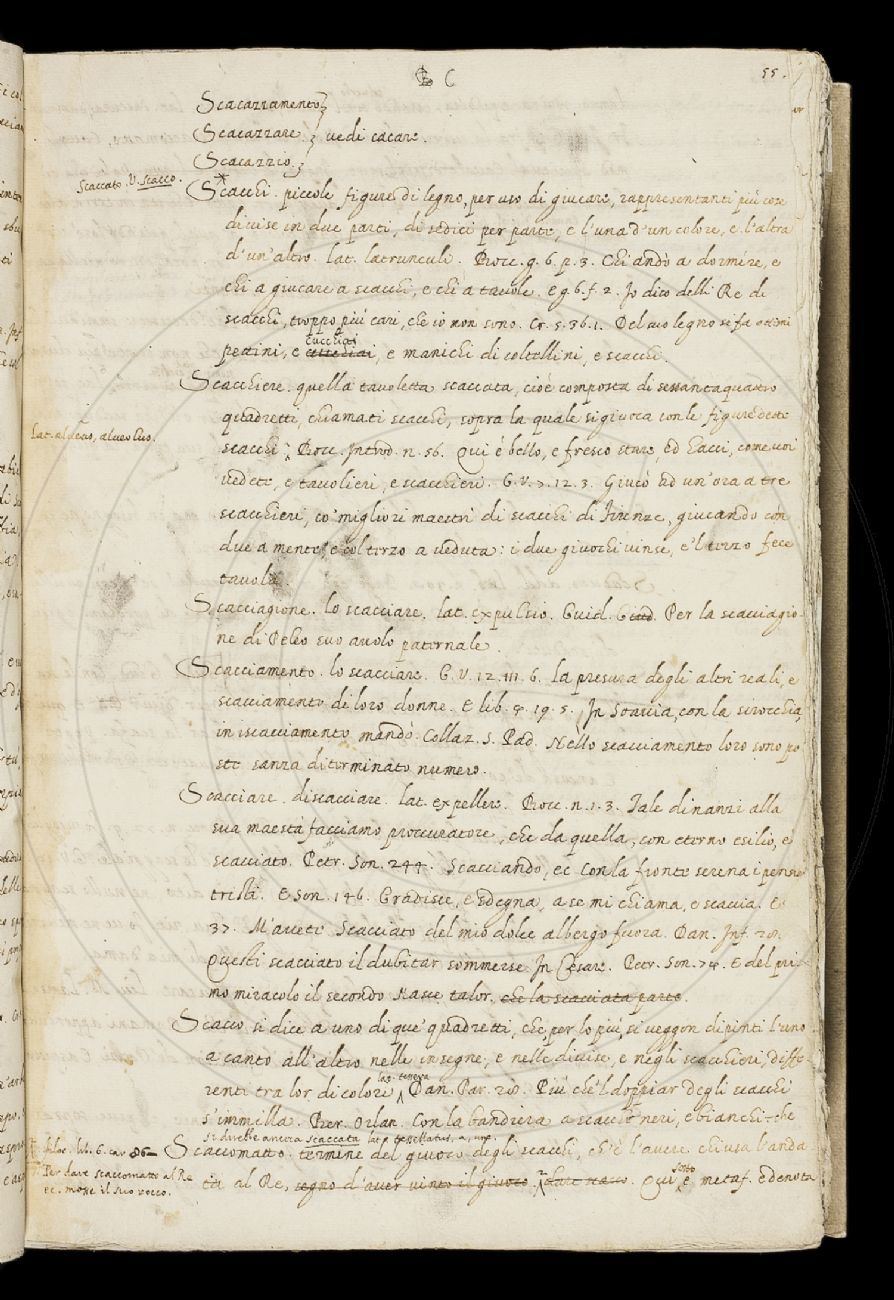 S C 55.
Scacazzamento
Scacazzare. vedi cacare.
Scacazzio.
Scaccato. V. scacco.
Scacchi. piccole figure di legno, per uso di giucare, rappresentanti più cose
divise in due parti, di sedici per parte, e l'una d'un colore, e l'altra
d'un'altro. lat. latrunculi. Bocc. g. 6. p. 3. Chi andò a dormire, e
chi a giucare a scacchi, e chi a tavole. E g. 6. f. 2. Io dico delli Re di
scacchi, troppo più cari, che io non sono. Cr. 5. 36. 1. Del suo legno si fa ottimi
pettini, e cucchiai, e manichi di coltellini, e scacchi.
Scacchiere. quella tavoletta scaccata, cioè composta di sessantaquattro
quadretti, chiamati scacchi, sopra la quale si giuoca con le figure dette
Lat. alveus, alveolus.
scacchi. Bocc. Introd. n. 56. Qui è bello, e fresco stare, ed hacci, come voi
vedete, e tavolieri, e scacchieri. G. V. 7. 12. 3. Giucò ad un'ora a tre
scacchieri, co' migliori maestri di scacchi di Firenze, giucando con
due a mente, e col terzo a veduta: i due giuochi vinse, e 'l terzo fece
tavola.
Scacciagione. lo scacciare. lat. expulsio. Guid. Giud. Per la scacciagio-
ne di Peleo suo avolo paternale.
Scacciamento. lo scacciare. G. V. 12. 111. 6. La presura degli altri reali, e
scacciamento di loro donne. E lib. 4. 19. 5. In Soavia, con la sirocchia,
in iscacciamento mandò. Collaz. S. Pad. Nello scacciamento loro sono po
ste sanza diterminato numero.
Scacciare. discacciare. lat. expellere. Bocc. n. 1. 3. Tale dinanzi alla
sua maestà facciamo proccuratore, che da quella, con eterno esilio, è
scacciato. Petr. Son. 244. Scacciando, ec con la fronte serena i pensie
tristi. E Son. 146. Gradisce, e sdegna, a se mi chiama, e scaccia. E
37. M'avete Scacciato del mio dolce albergo fuora. Dan. Inf. 28.
Questi scacciato il dubitar sommerse In Cesare. Petr. Son. 74. E del pri
mo miracolo il secondo Nasce talor, che la scacciata parte.
Scacco si dice a uno di que' quadretti, che, per lo più, si veggon dipinti l'uno
a canto all'altro nelle insegne, e nelle divise, e negli scacchieri, diffe-
renti tra lor di colori. lat. tessera Dan. Par. 28. Più che 'l doppiar degli scacchi
s'immilla. Ber. Orlan. Con la bandiera a scacchi neri, e bianchi. che
si direbbe ancora scaccata
Scaccomatto. termine del giuoco degli scacchi, ch'è l'avere chiusa l'anda
lib. 6. car 86
Per dare scaccomatto al Re
ec. mosse il suo rocco.
ta al Re, segno d'aver vinto il giuoco. Qui sotto è metaf. e denota